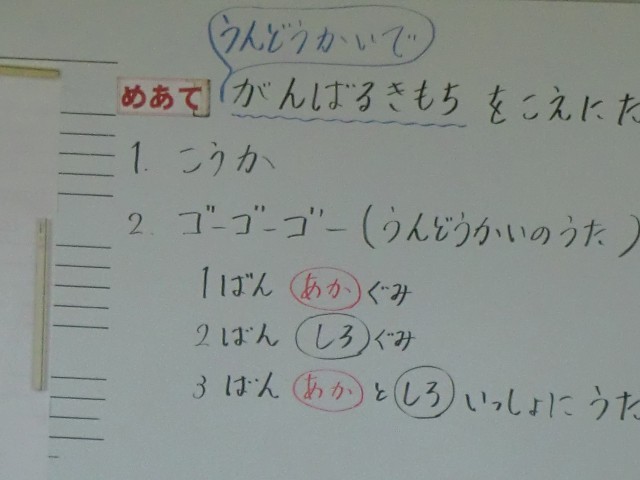 うんどうかいで
めあて がんばるきもち をこえにた
1. こうか
2. ゴーゴーゴー(うんどうかいのうた)
1ばん あかぐみ
2ばん しろぐみ
3ばん あかとしろ いっしょにうた